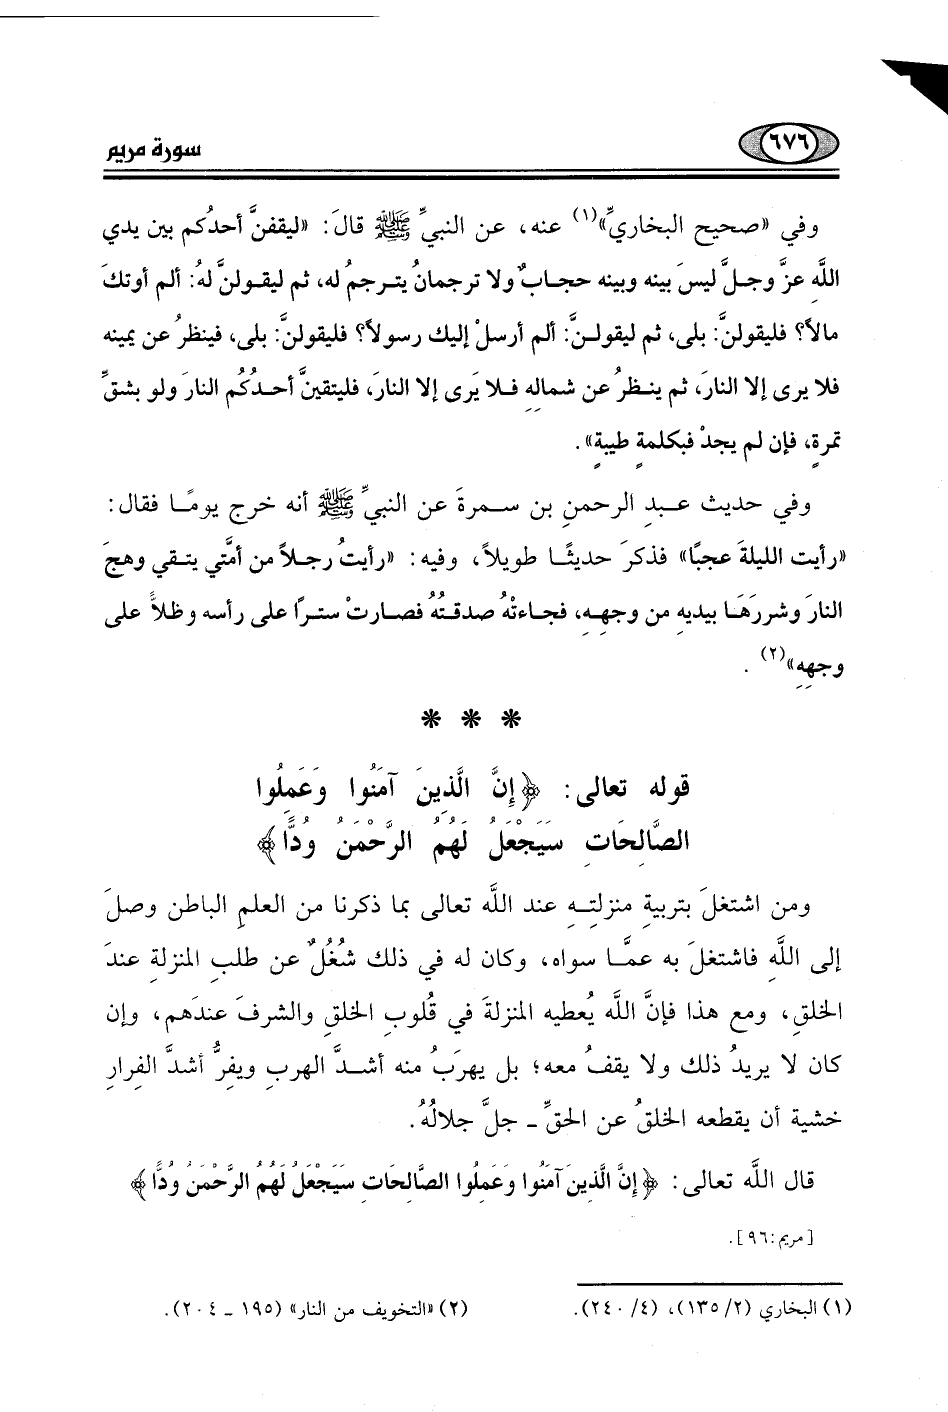 ٦٧٦
سورة مريم
وفي «صحيح البخاريِّ»(١) عنه، عن النبيِّ ﷺ قالَ: «ليقفنَّ أحدُكم بين يدي
اللَّه عزَّ وجلَّ ليسَ بينه وبينه حجابٌ ولا ترجمانُ يترجمُ له، ثم ليقولنَّ لهُ: ألم أوتكَ
مالاً؟ فليقولنَّ: بلى، ثم ليقولنَّ: ألم أرسلْ إليك رسولاً؟ فليقولنَّ: بلى، فينظرُ عن يمينه
فلا يرى إلا النارَ، ثم ينظرُ عن شمالِهِ فلا يَرى إلا النارَ، فليتقينَّ أحدُكُم النارَ ولو بشقِّ
تمرةٍ، فإن لم يجدْ فبكلمةٍ طيبةٍ».
وفي حديث عبدِ الرحمنِ بن سمرةَ عن النبيِّ ﷺ أنه خرج يومًا فقال:
«رأيت الليلةَ عجبًا» فذكرَ حديثًا طويلاً، وفيه: «رأيتُ رجلاً من أمَّتي يتقي وهجَ
النارَ وشررَهَا بيديهِ من وجهِهِ، فجاءتْهُ صدقتُهُ فصارتْ سترًا على رأسه وظلاًّ على
وجهِهِ»(٢).
* * *
قوله تعالى: ﴿إِنَّ الَّذِينَ آمَنُوا وَعَمِلُوا
الصَّالِحَاتِ سَيَجْعَلُ لَهُمُ الرَّحْمَنُ وُدًّا﴾
ومن اشتغلَ بتربيةِ منزلتِهِ عند اللَّه تعالى بما ذكرنا من العلمِ الباطن وصلَ
إلى اللَّهِ فاشتغلَ به عمَّا سواه، وكان له في ذلك شُغُلٌ عن طلبِ المنزلةِ عندَ
الخلقِ، ومع هذا فإنَّ اللَّه يُعطيه المنزلةَ في قُلوبِ الخلقِ والشرفَ عندَهم، وإن
كان لا يريدُ ذلك ولا يقفُ معه؛ بل يهرَبُ منه أشدَّ الهربِ ويفرُّ أشدَّ الفِرارِ
خشية أن يقطعه الخلقُ عن الحقِّ ـ جلَّ جلالُهُ.
قال اللَّه تعالى: ﴿إِنَّ الَّذِينَ آمَنُوا وَعَمِلُوا الصَّالِحَاتِ سَيَجْعَلُ لَهُمُ الرَّحْمَنُ وُدًّا﴾
[مريم:٩٦].
(١) البخاري (٢/ ١٣٥)، (٤/ ٢٤٠).
(٢) «التخويف من النار» (١٩٥ ـ ٢٠٤).